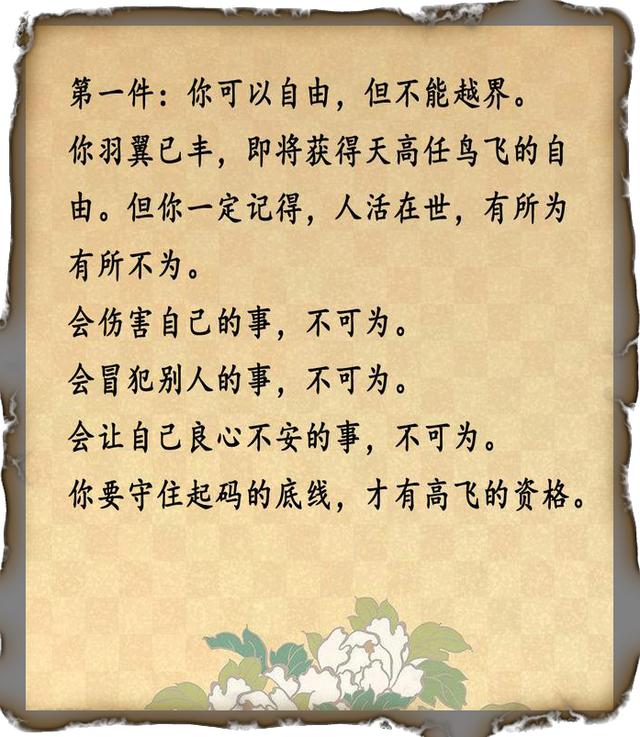 第一件：你可以自由，但不能越界。
你羽翼已丰，即将获得天高任鸟飞的自
由。但你一定记得，人活在世，有所为
有所不为。
会伤害自己的事，不可为。
会冒犯别人的事，不可为。
会让自己良心不安的事，不可为。
你要守住起码的底线，才有高飞的资格。